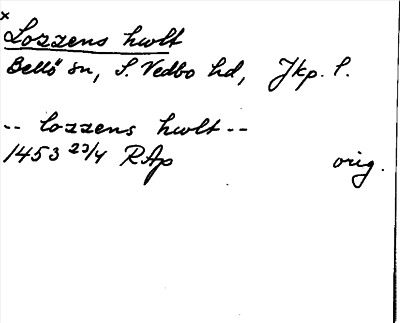 x
Lozzens hwlt
Bellö sn, S. Vedbo hd, Jkp. l.
-- lozzens hwlt --
1453 23/4 RAp orig.